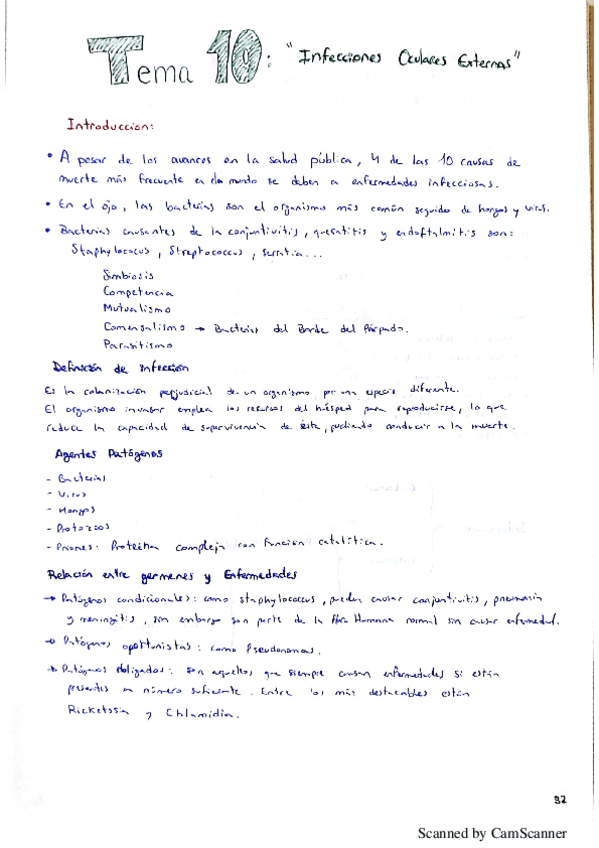 Tema 10: "Infecciones Oculares Externas"
Introducción:
• A pesar de los avances en la salud pública, 4 de las 10 causas de
muerte más frecuente en el mundo se deben a enfermedades infecciosas.
• En el ojo, las bacterias son el organismo más común seguido de hongos y virus.
• Bacterias causantes de la conjuntivitis, queratitis y endoftalmitis son:
Staphylococus, Streptococcus, serratia...
Simbiosis
Competencia
Mutualismo
Comensalismo → Bacterias del Borde del Párpado.
Parasitismo
Definición de infección
Es la colonización perjudicial de un organismo por una especie diferente.
El organismo invasor emplea los recursos del húésped para reproducirse, lo que
reduce la capacidad de supervivencia de éste, pudiendo conducir a la muerte.
Agentes Patógenos
- Bacterias
- Virus
- Hongos
- Protozoos
- Priones: Proteína compleja con función catalítica.
Relación entre germenes y Enfermedades
→ Patógenos condicionales: como staphylococus, pueden causar conjuntivitis, pneumonía
y meningitis, sin embargo son parte de la flora Humana normal sin causar enfermedad.
→ Patógenos oportunistas: como Pseudomonas.
→ Patógenos obligados: son aquellos que siempre causan enfermedades si están
presentes en número suficiente. Entre los más destacables están
Ricketssia y Chlamidia.
92
Scanned by CamScanner